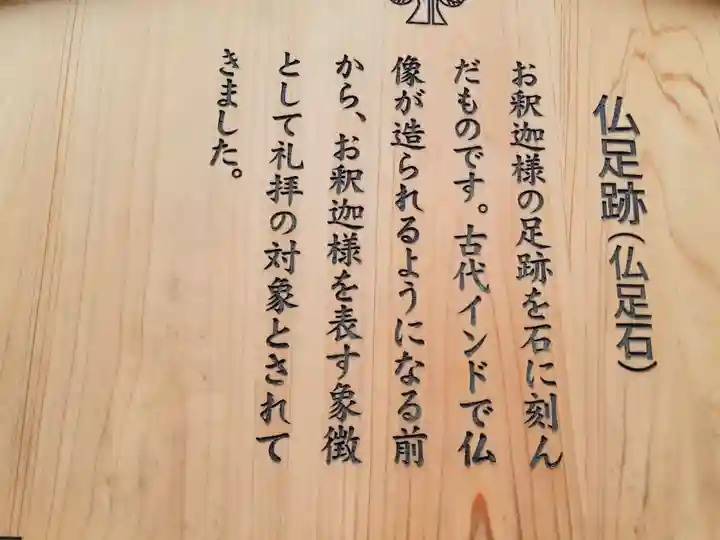 仏足跡(仏足石)
お釈迦様の足跡を石に刻ん
だものです。古代インドで仏
像が造られるようになる前
から、お釈迦様を表す象徴
として礼拝の対象とされて
きました。